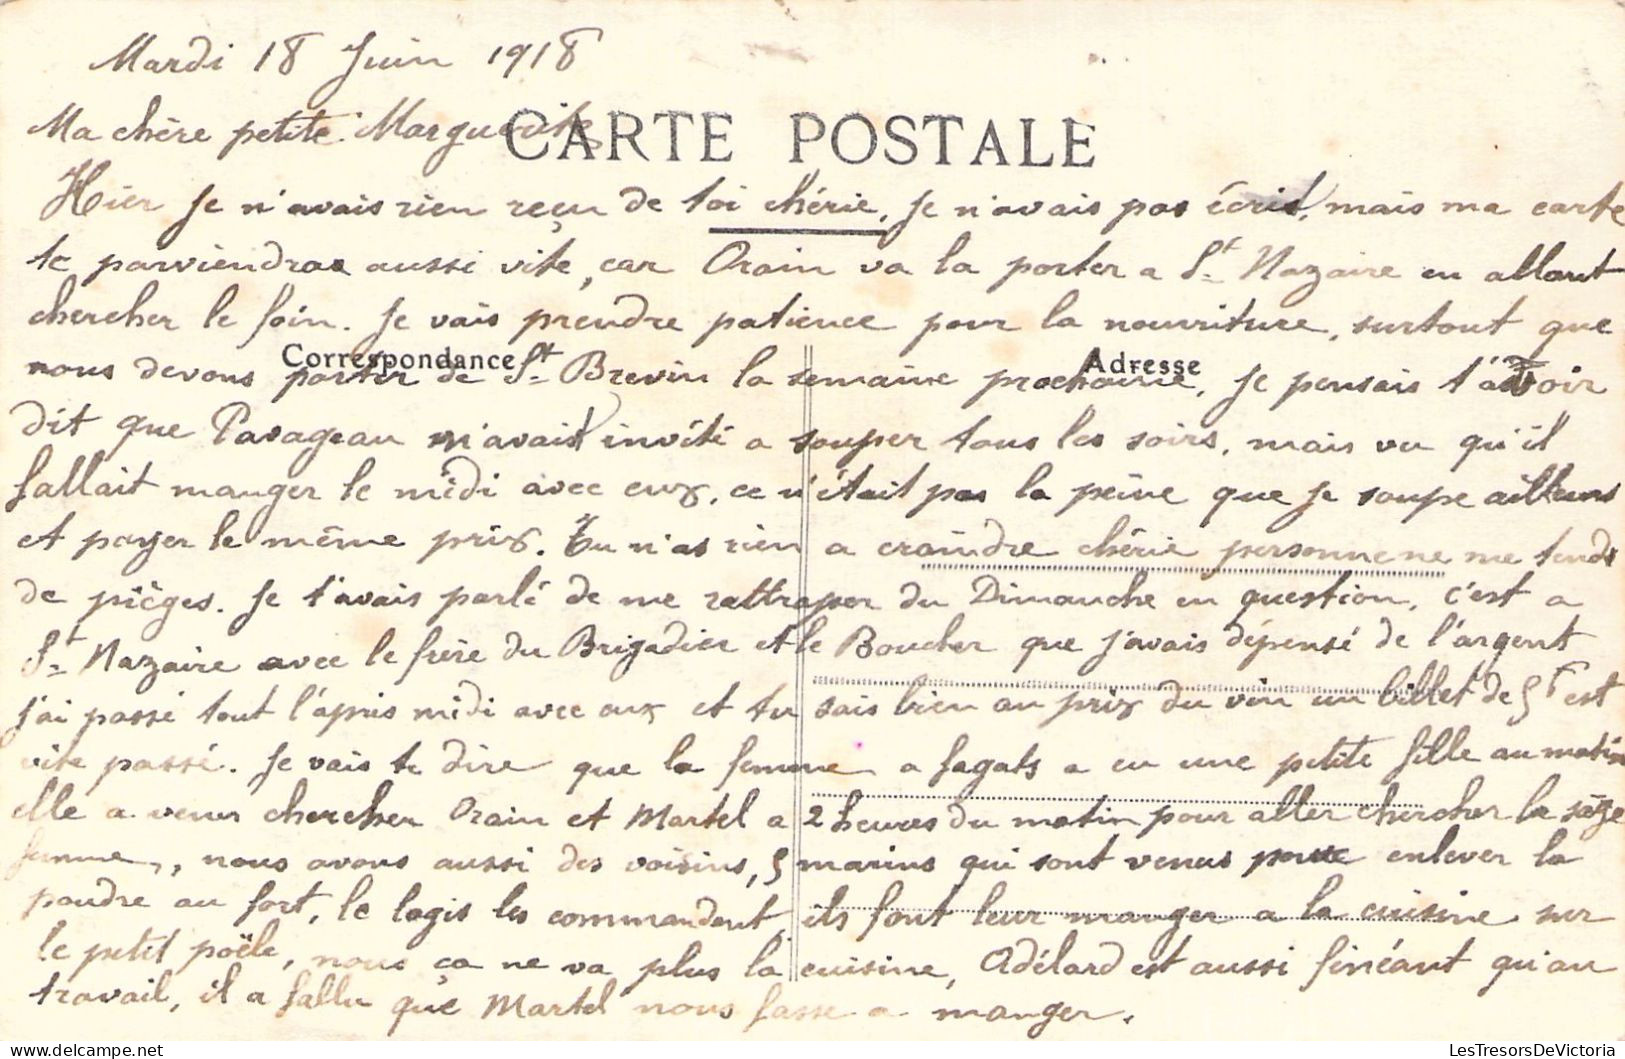 Mardi 18 Juin 1918
Ma chère petite Marguerite
CARTE POSTALE
Hier Je n'avais rien reçu de toi chérie, Je n'avais pas écrit, mais ma carte
te parviendra aussi vite, car Orain va la porter a St Nazaire en allant
chercher le foin. Je vais prendre patience pour la nourriture, surtout que
Correspondance
Adresse
nous devons partir de St Brevin la semaine prochaine, Je pensais t'avoir
dit que Pavageau m'avait invité a souper tous les soirs, mais vu qu'il
fallait manger le midi avec eux, ce n'était pas la peine que Je soupe ailleurs
et payer le même prix. Tu n'as rien a craindre chérie personne ne me tends
de pièges. Je t'avais parlé de me rattraper du Dimanche en question, c'est a
St Nazaire avec le frère du Brigadier et le Boucher que j'avais dépensé de l'argent
j'ai passé tout l'après midi avec eux et tu sais bien au prix du vin un billet de 5f est
vite passé. Je vais te dire que la femme a Jagats a eu une petite fille au matin
elle a venu chercher Orain et Martel a 2 heures du matin pour aller chercher la sage
femme, nous avons aussi des voisins, 5 marins qui sont venus pour enlever la
poudre au fort, le logis les commandent, ils font leur manger a la cuisine sur
le petit poële, nous ça ne va plus la cuisine, Adélard est aussi finéant qu'au
travail, il a fallu que Martel nous fasse a manger.
LesTresorsDeVictoria